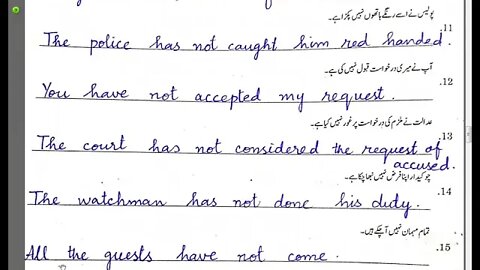 پولیس نے اسے رنگے ہاتھوں نہیں پکڑا ہے۔ .11
The police has not caught him red handed.
آپ نے میری درخواست قبول نہیں کی ہے۔ .12
You have not accepted my request.
عدالت نے ملزم کی درخواست پر غور نہیں کیا ہے۔ .13
The court has not considered the request of
accused.
چوکیدار اپنا فرض نہیں نبھا چکا ہے۔ .14
The watchman has not done his duty.
تمام مہمان نہیں آ چکے ہیں۔ .15
All the guests have not come.